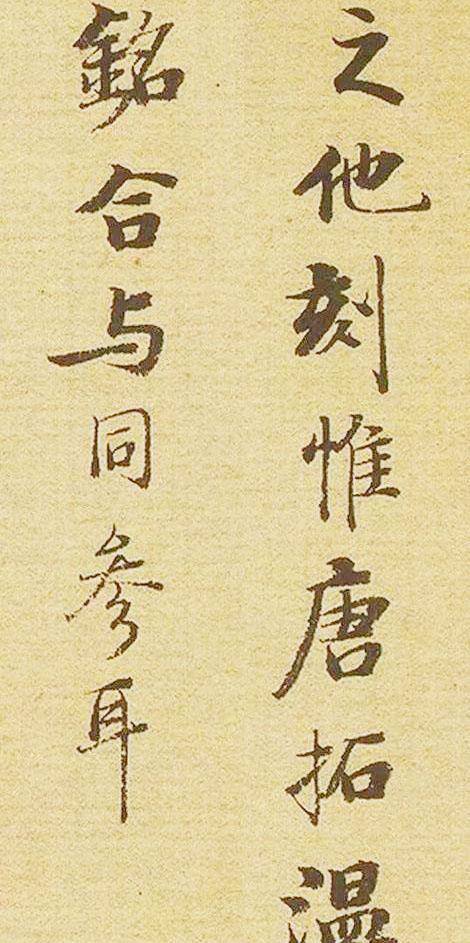 之他刻惟唐拓温
銘合与同參耳